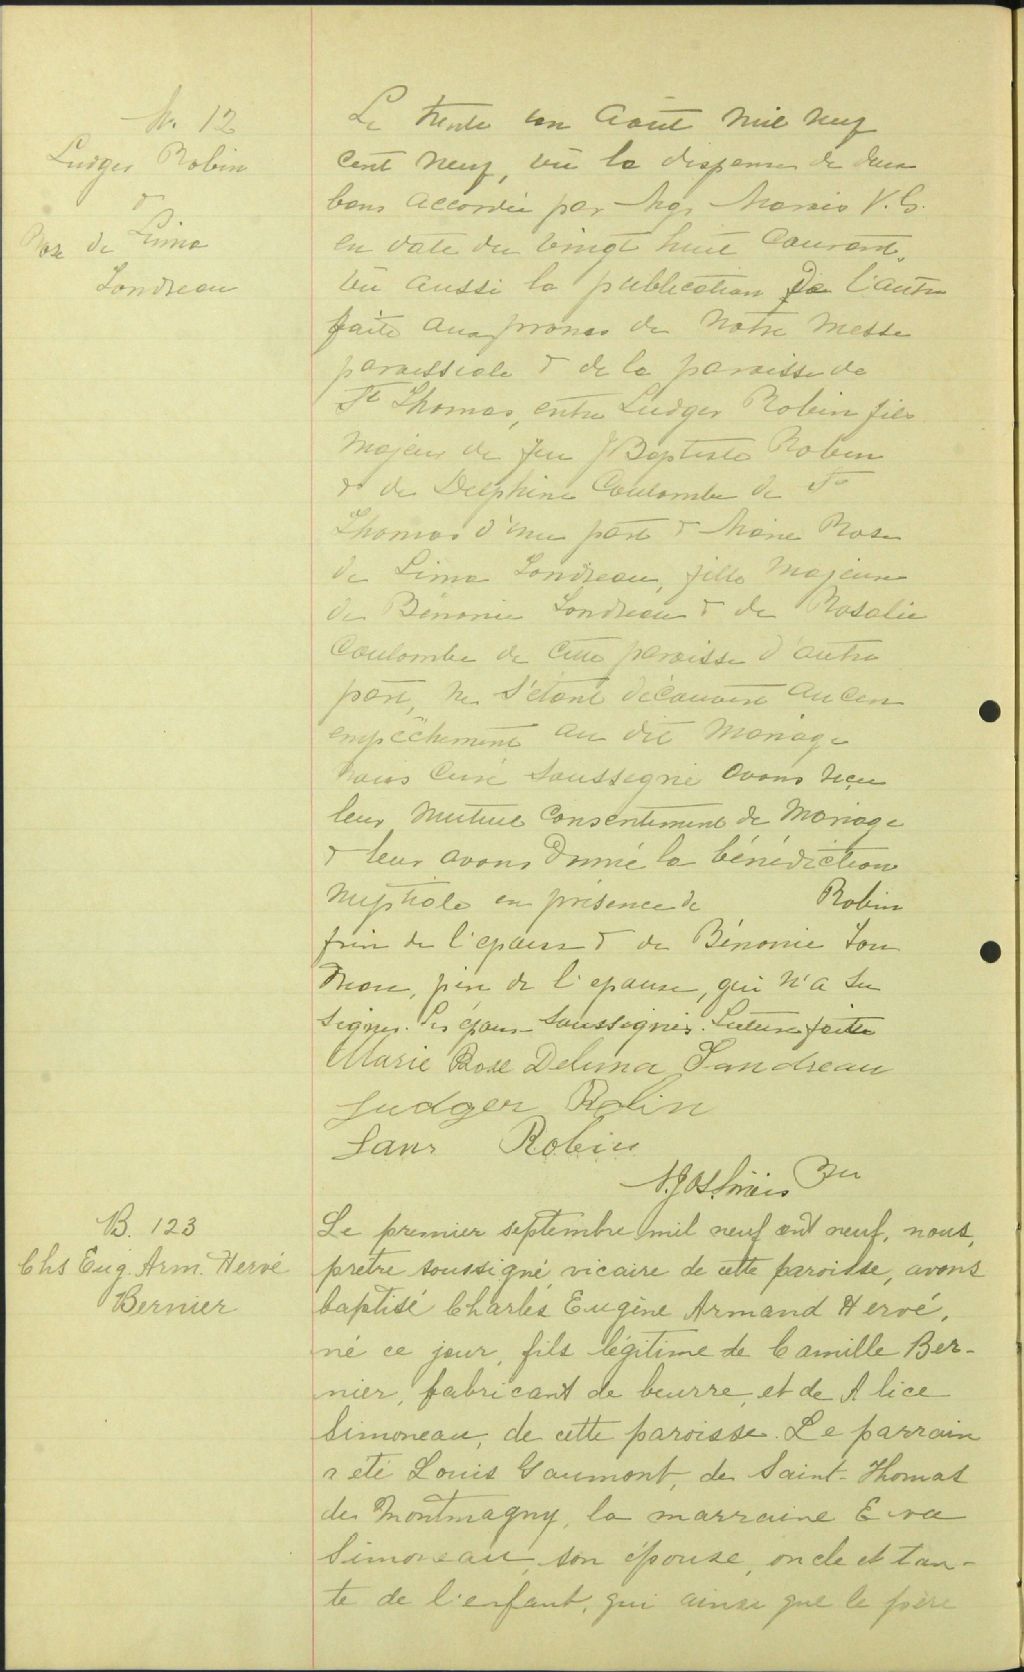 M. 12
Ludger Robin
&
Rose de Lima
Londreau
Le trente un Août mil neuf
cent neuf, vu la dispense de deux
bans accordée par Mgr Marois V. G.
en date du vingt huit Courant,
vu aussi la publication de l'autre
faite aux prones de notre Messe
paroissiale & de la paroisse de
St Thomas, entre Ludger Robin fils
Majeur de feu J Baptiste Robin
& de Delphine Coulombe de St
Thomas d'une part & Marie Rose
de Lima Londreau, fille Majeure
de Bénonie Londreau & de Rosalie
Coulombe de cette paroisse d'autre
part, ne s'étant découvert aucun
empêchement au dit Mariage
Nous Curé Soussigné avons reçu
leur Mutuel Consentement de Mariage
& leur avons donné la bénédiction
nuptiale en présence de Robin
frère de l'époux & de Bénonie Lon
dreau, père de l'epouse, qui n'a su
signer. Les époux Soussignés. Lecture faite
Marie Rose Delima Landreau
Ludger Robin
Robin
N. Jos. Sirois Ptre
B. 123
Chs Eug. Arm. Hervé
Bernier
Le premier septembre mil neuf cent neuf, nous,
prêtre soussigné, vicaire de cette paroisse, avons
baptisé Charles Eugène Armand Hervé,
né ce jour, fils légitime de Camille Ber-
nier, fabricant de beurre, et de Alice
Simoneau, de cette paroisse. Le parrain
a été Louis Gaumont, de Saint-Thomas
de Montmagny, la marraine Eva
Simoneau, son épouse, oncle et tan-
te de l'enfant, qui ainsi que le père